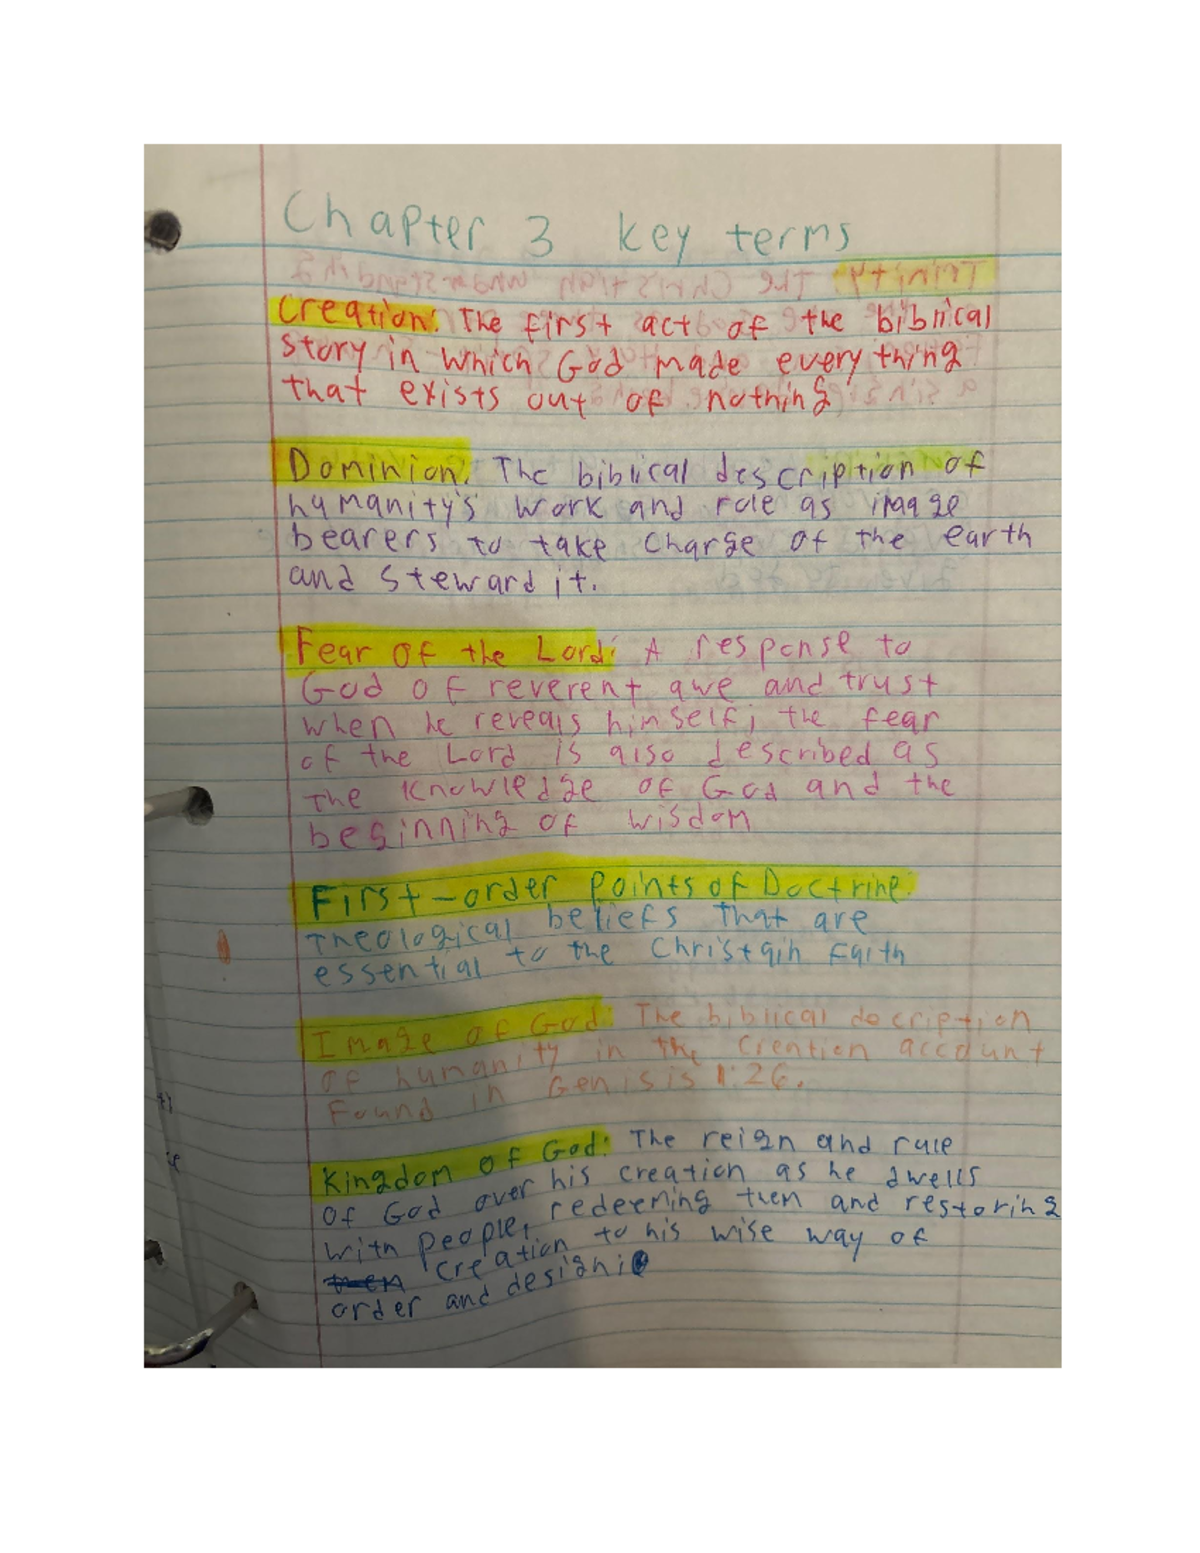 Chapter 3 key terms
Creation: The first act of the biblical
story in which God made everything
that exists out of nothing
Dominion: The biblical description of
humanity's work and role as image
bearers to take charge of the earth
and steward it.
Fear of the Lord: A response to
God of reverent awe and trust
when he reveals himself; the fear
of the Lord is also described as
the knowledge of God and the
beginning of wisdom
First-order Points of Doctrine:
Theological beliefs that are
essential to the Christain Faith
Image of God: The biblical decription
of humanity in the Creation account
Found in Genisis 1:26.
Kingdom of God: The reign and rule
of God over his creation as he dwells
with people, redeeming them and restoring
creation to his wise way of
order and design